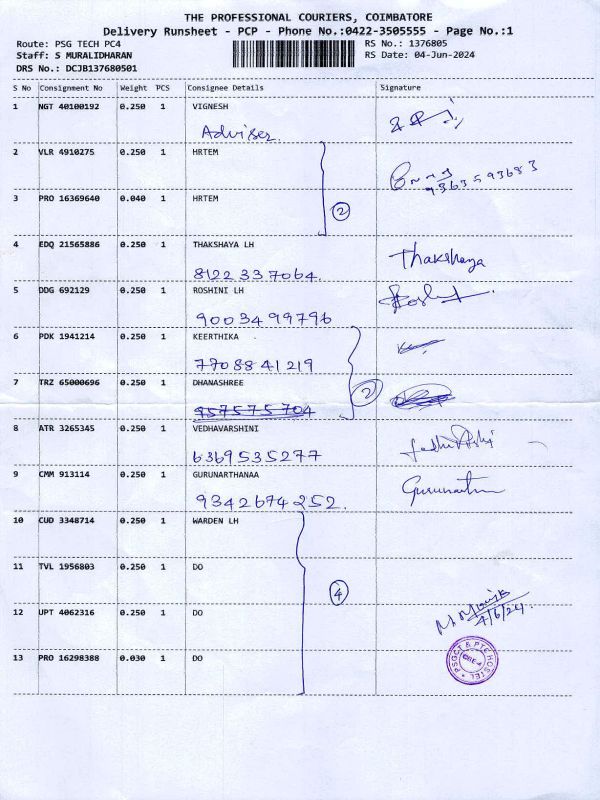 THE PROFESSIONAL COURIERS, COIMBATORE
Delivery Runsheet - PCP - Phone No.:0422-3505555 - Page No.:1
Route: PSG TECH PC4 RS No.: 1376805
Staff: S MURALIDHARAN RS Date: 04-Jun-2024
DRS No.: DCJB137680501
S No Consignment No Weight PCS Consignee Details Signature
1 NGT 40100192 0.250 1 VIGNESH
Adviser
2 VLR 4910275 0.250 1 HRTEM
9363593683
3 PRO 16369640 0.040 1 HRTEM
2
4 EDQ 21565886 0.250 1 THAKSHAYA LH Thakshaya
8122337064.
5 DDG 692129 0.250 1 ROSHINI LH
9003499796
6 PDK 1941214 0.250 1 KEERTHIKA
7708841219
7 TRZ 65000696 0.250 1 DHANASHREE
2
8 ATR 3265345 0.250 1 VEDHAVARSHINI
6369535277
9 CMM 913114 0.250 1 GURUNARTHANAA
9342674252.
10 CUD 3348714 0.250 1 WARDEN LH
11 TVL 1956803 0.250 1 DO
4
12 UPT 4062316 0.250 1 DO
4/6/24.
13 PRO 16298388 0.030 1 DO
PSGCT & PTC HOSTEL
CBE-4